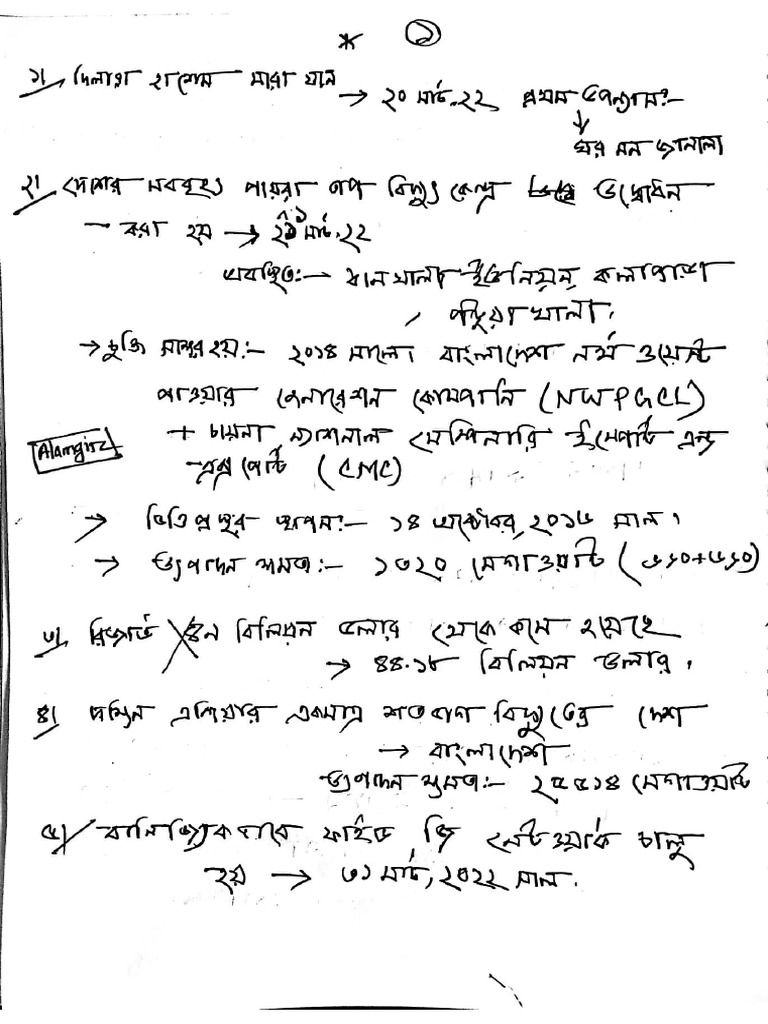 * ১
১। দিলারা হাশেম মারা যান → ২০ মার্চ.২২ প্রথম উপন্যাস:-
↓
ঘর মন জানালা
২। দেশের সর্ববৃহৎ পায়রা তাপ বিদ্যুৎ কেন্দ্র উদ্বোধন
করা হয় → ২১ মার্চ.২২
অবস্থিত:- ধানখালী ইউনিয়ন, কলাপাড়া
, পটুয়াখালী।
→ চুক্তি সাক্ষর হয়:- ২০১৪ সালে। বাংলাদেশ নর্থ ওয়েস্ট
পাওয়ার জেনারেশন কোম্পানি (NWPGCL)
+ চায়না ন্যাশনাল মেশিনারি ইমপোর্ট এন্ড
Alamgir
এক্সপোর্ট (CMC)
→ ভিত্তিপ্রস্তুর স্থাপন:- ১৪ অক্টোবর, ২০১৬ সাল।
→ উৎপাদন ক্ষমতা:- ১৩২০ মেগাওয়াট (৬৬০+৬৬০)
৩। রিজার্ভ বিলিয়ন ডলার থেকে কমে হয়েছে
→ ৪৪.১৮ বিলিয়ন ডলার।
৪। দক্ষিন এশিয়ার একমাত্র শতভাগ বিদ্যুতের দেশ
→ বাংলাদেশ
উৎপাদন ক্ষমতা:- ২৫৫১৪ মেগাওয়াট
৫। বানিজ্যিকভাবে ফাইভ জি নেটওয়ার্ক চালু
হয় → ৩১ মার্চ, ২০২২ সাল.